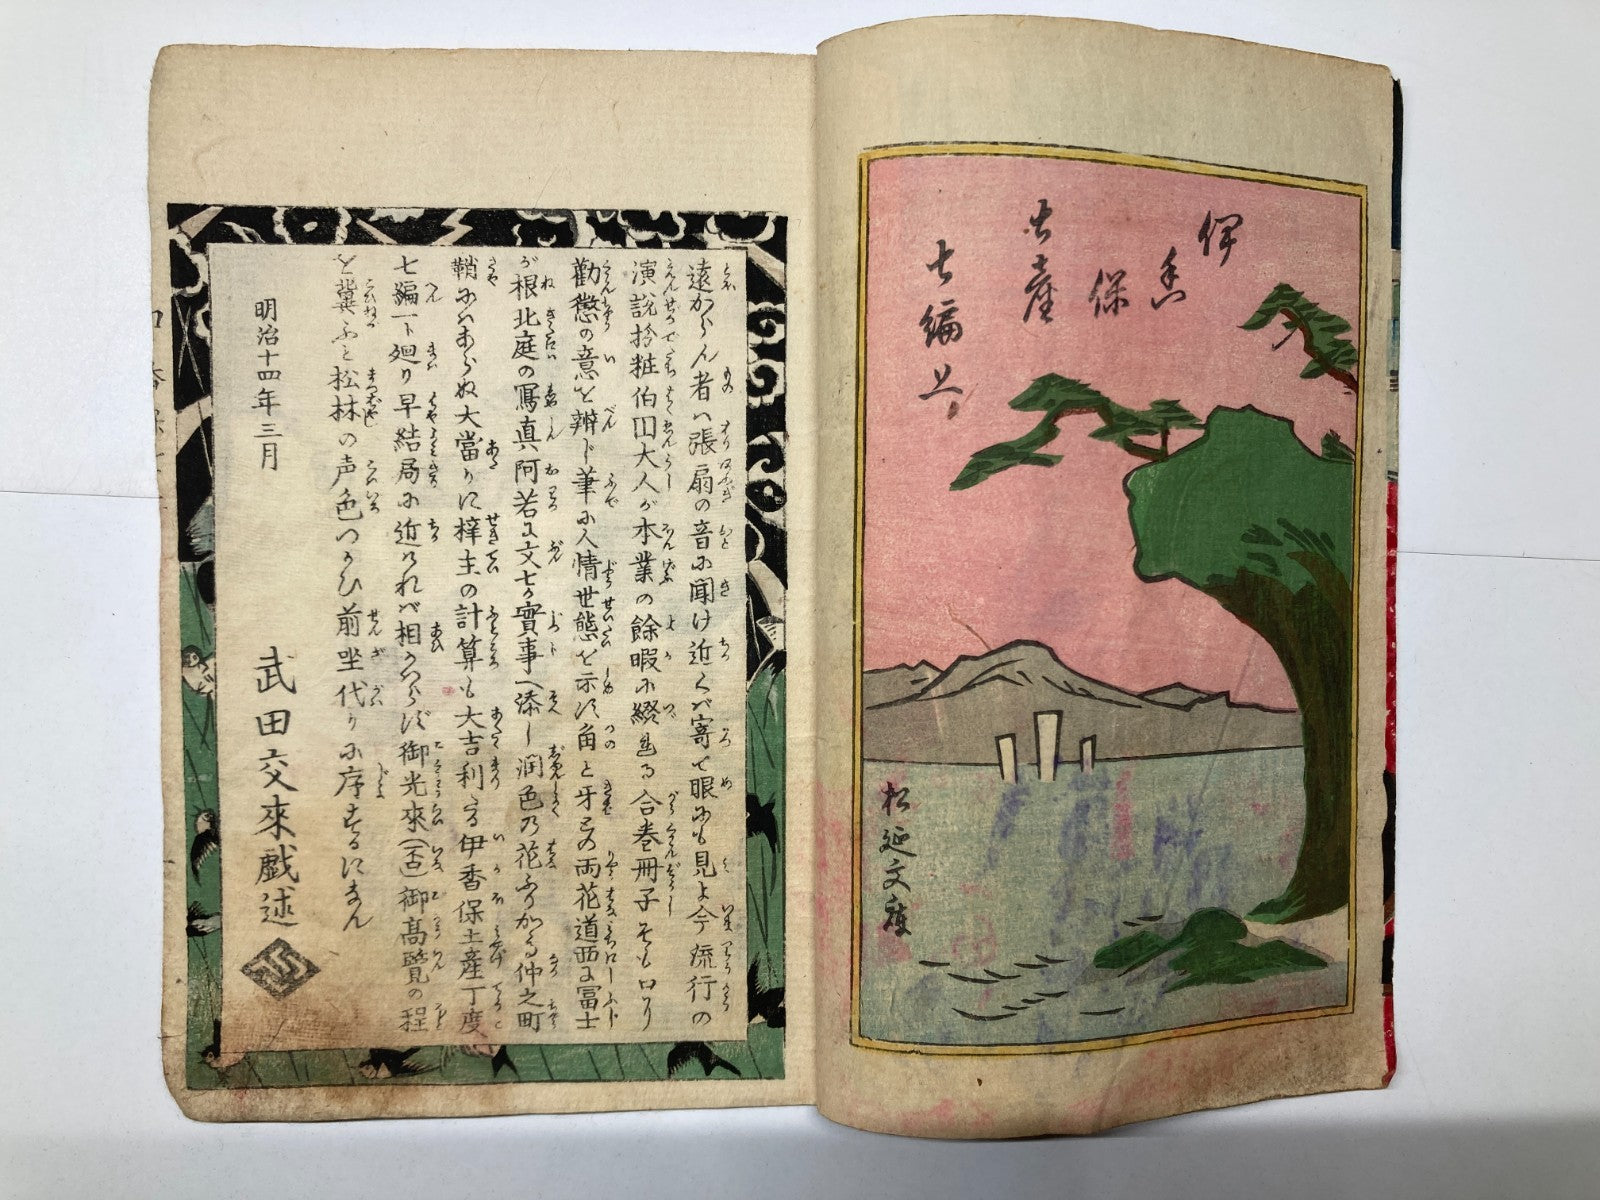 伊香保
土産
七編上
松延文庫
遠からん者ハ張扇の音に聞け近くバ寄せ眼にも見よ今流行の
演説扮粧伯円大人が本業の餘暇に綴出る合巻冊子そも口切
勸懲の意を辨じ筆に人情世態を示す角と牙込の両花道西に冨士
が根北庭の寫真阿若に文七が實事へ添し潤色の花ふりかゝる仲之町
鞘にハあらぬ大當りに梓主の計算も大吉利なる伊香保土産丁度
七編ト廻り早結局に近けれバ相かハらず御光來(否)御高覧の程
を冀ふと松林の声色つかひ前坐代りに序するになん
明治十四年三月
武田交來戯述